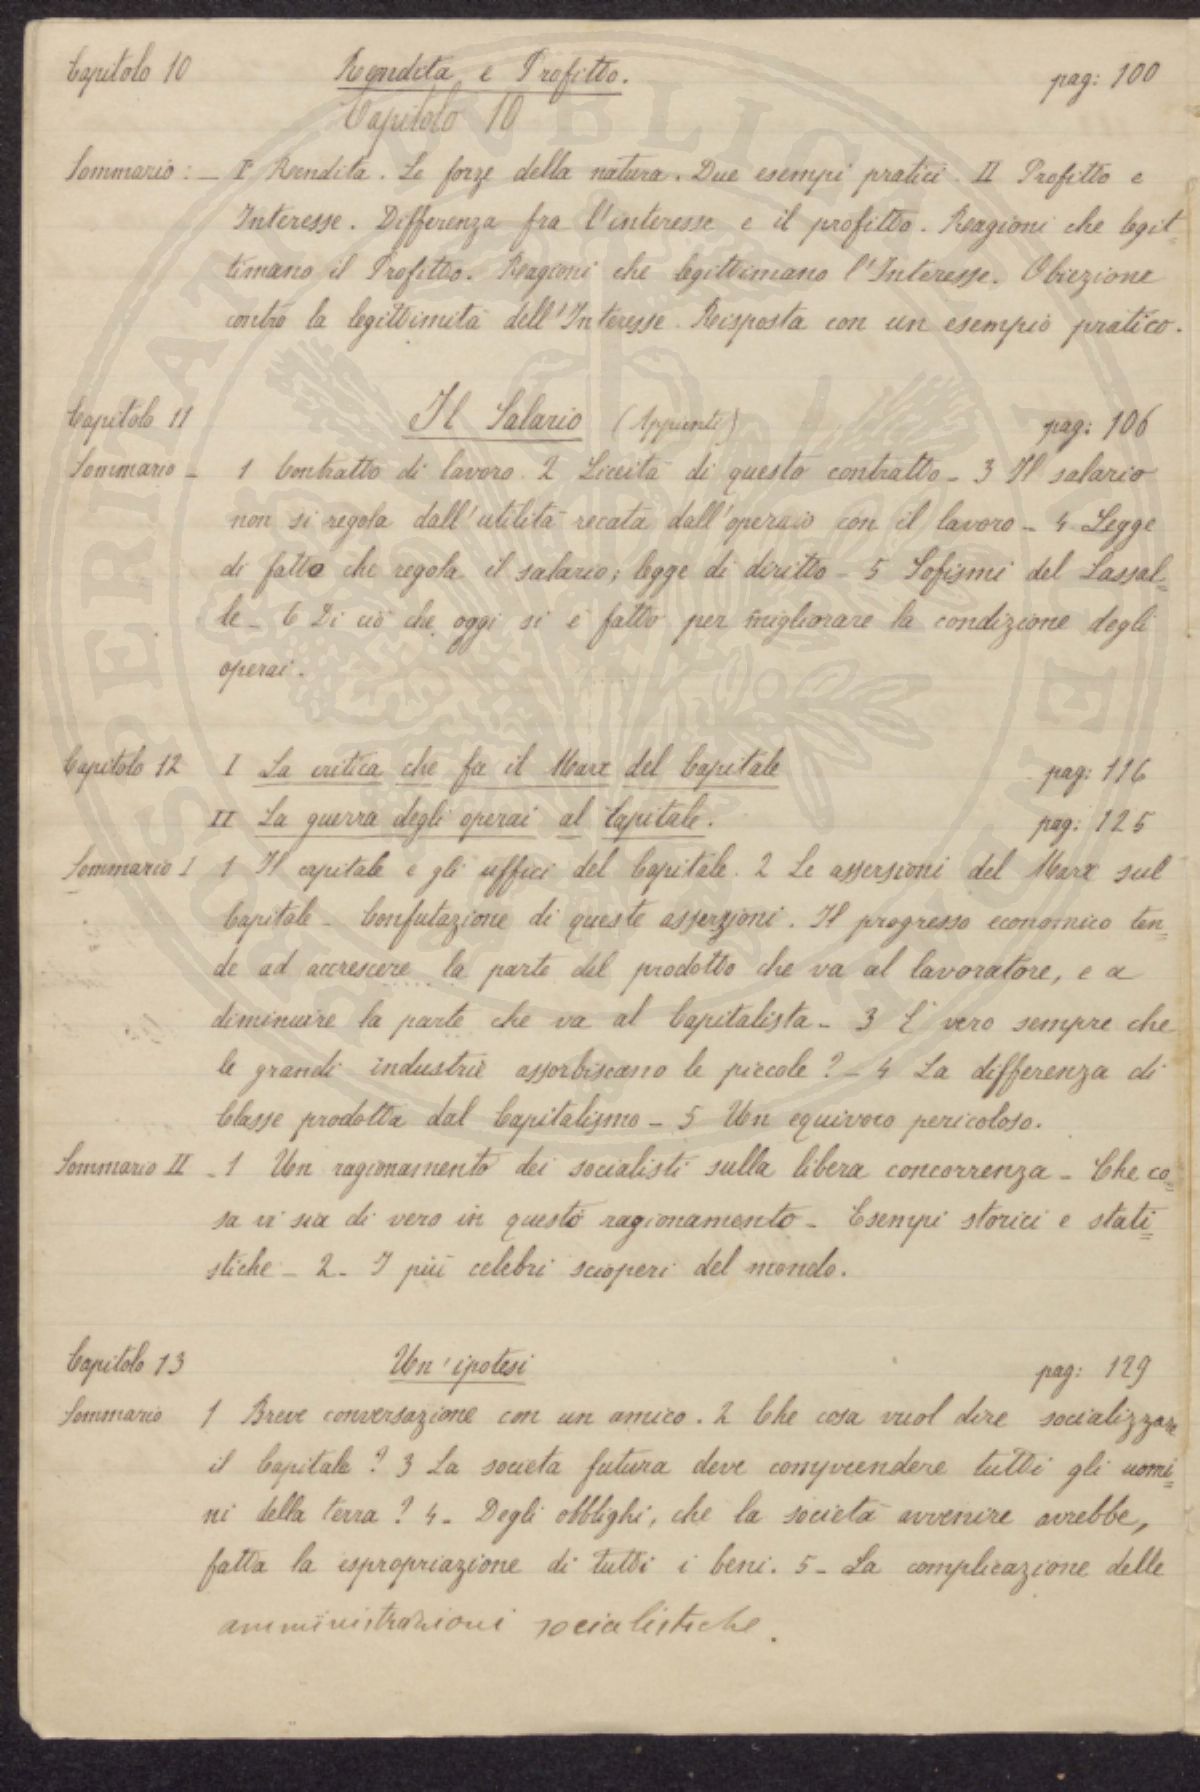 Capitolo 10 Rendita e Profitto. pag: 100
Capitolo 10
Sommario: _ I° Rendita. Le forze della natura. Due esempi pratici. II Profitto e
Interesse. Differenza fra l'interesse e il profitto. Ragioni che legit-
timano il Profitto. Ragioni che legittimano l'Interesse. Obiezione
contro la legittimità dell'Interesse. Risposta con un esempio pratico.
Capitolo 11 Il Salario (Appunti) pag: 106
Sommario _ 1 Contratto di lavoro. 2 Liceità di questo contratto _ 3 Il salario
non si regola dall'utilità recata dall'operaio con il lavoro _ 4 Legge
di fatto che regola il salario; legge di diritto _ 5 Sofismi del Lassal=
le _ 6 Di ciò che oggi si è fatto per migliorare la condizione degli
operai.
Capitolo 12 I La critica che fa il Marx del Capitale pag: 116
II La guerra degli operai al Capitale. pag: 125
Sommario I 1 Il capitale e gli uffici del Capitale. 2 Le asserzioni del Marx sul
Capitale _ Confutazione di queste asserzioni. Il progresso economico ten=
de ad accrescere la parte del prodotto che va al lavoratore, e a
diminuire la parte che va al Capitalista _ 3 È vero sempre che
le grandi industrie assorbiscano le piccole? _ 4 La differenza di
Classe prodotta dal Capitalismo _ 5 Un equivoco pericoloso.
Sommario II _ 1 Un ragionamento dei socialisti sulla libera concorrenza _ Che co=
sa vi sia di vero in questo ragionamento _ Esempi storici e stati=
stiche _ 2 _ I più celebri scioperi del mondo.
Capitolo 13 Un'ipotesi pag: 129
Sommario 1 Breve conversazione con un amico. 2 Che cosa vuol dire socializzare
il Capitale? 3 La società futura deve comprendere tutti gli uomi=
ni della terra? 4 _ Degli obblighi, che la società avvenire avrebbe,
fatta la espropriazione di tutti i beni. 5 _ La complicazione delle
amministrazioni socialistiche.